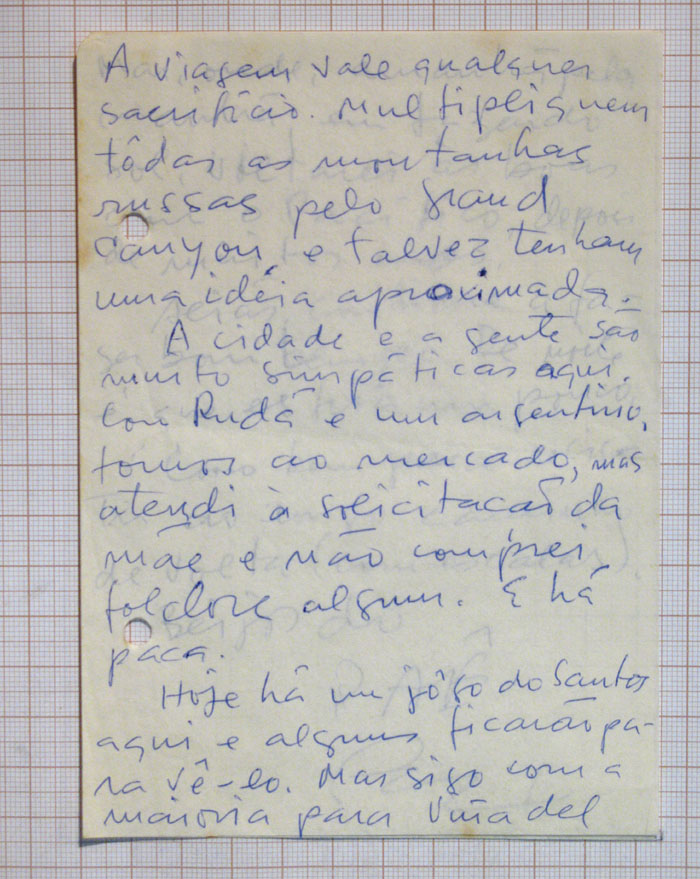 A viagem vale qualquer
sacrifício. Multipliquem
tôdas as montanhas
russas pelo Grand
Canyon, e talvez tenham
uma idéia aproximada.
A cidade e a gente são
muito simpáticas aqui.
Con Rudá e um argentino,
fomos ao mercado, mas
atendi à solicitação da
mãe e não comprei
folclore algum. E há
paca.
Hoje há um jôgo do Santos
aqui e alguns ficarão pa-
ra vê-lo. Mas sigo com a
maioria para Viña del